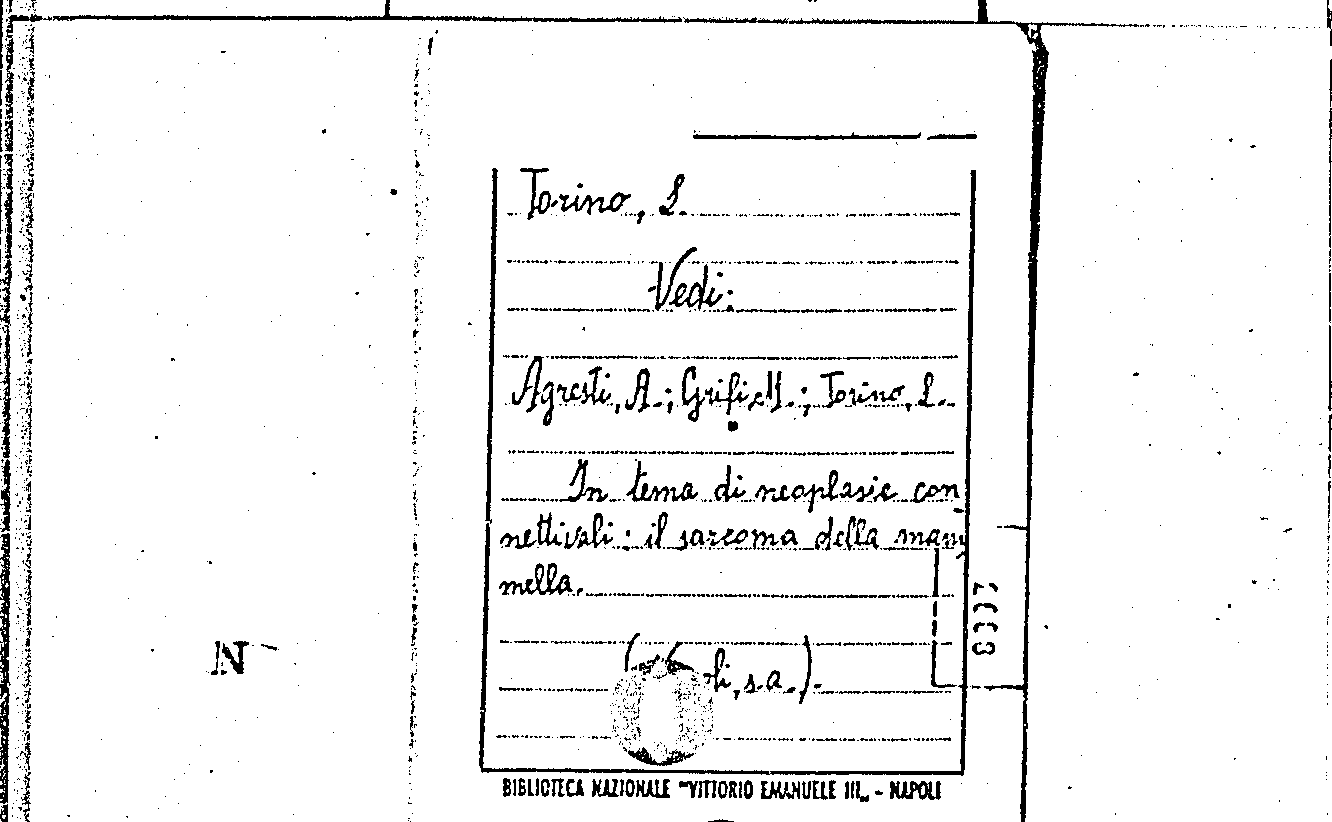 Torino, L.
Vedi:
Agresti, A.; Grifi, M.; Torino, L.
In tema di neoplasie con
nettivali: il sarcoma della mam
mella.
( oli, s.a.).
N
BIBLIOTECA NAZIONALE "VITTORIO EMANUELE III„ - NAPOLI